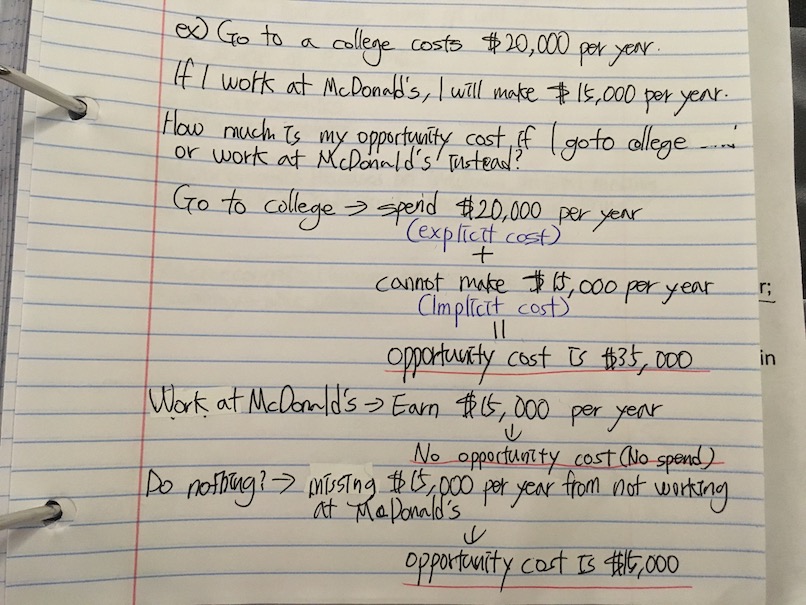 ex) Go to a college costs $20,000 per year.
If I work at McDonald's, I will make $15,000 per year.
How much is my opportunity cost if I go to college ....,
or work at McDonald's instead?
Go to college → spend $20,000 per year
(explicit cost)
+
cannot make $15,000 per year
(Implicit cost)
=
opportunity cost is $35,000
Work at McDonald's → Earn $15,000 per year
↓
No opportunity cost (No spend)
Do nothing? → missing $15,000 per year from not working
at McDonald's
↓
opportunity cost is $15,000
r;
in